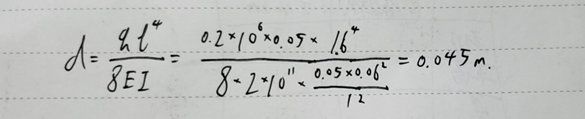 d = \frac{q l^4}{8EI} = \frac{0.2 × 10^6 × 0.05 × 1.6^4}{8 × 2 × 10^{11} × \frac{0.05 × 0.06^2}{12}} = 0.045 m.